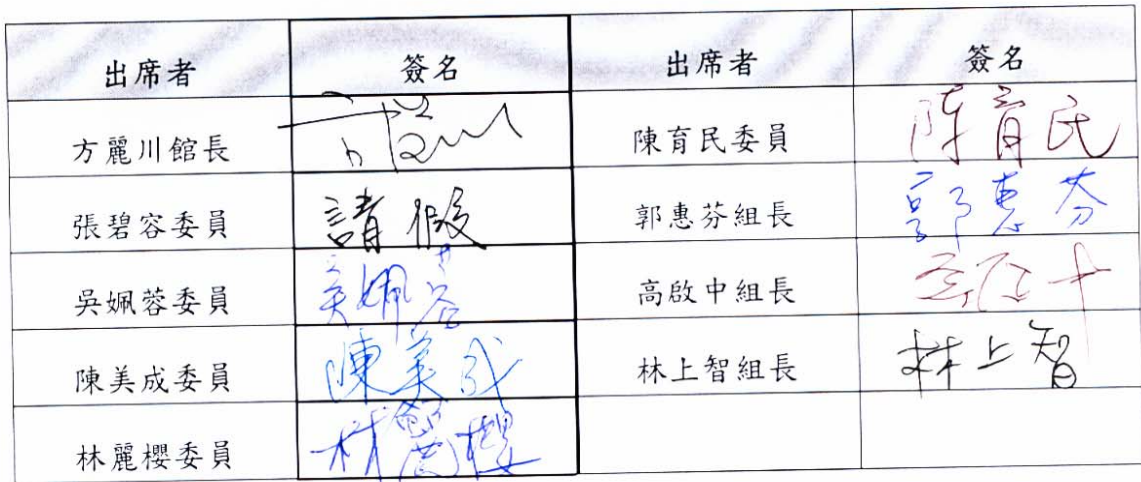 出席者 簽名 出席者 簽名
方麗川館長 陳育民委員 陳育民
張碧容委員 請假 郭惠芬組長 郭惠芬
吳姵蓉委員 吳姵蓉 高啟中組長
陳美成委員 陳美成 林上智組長 林上智
林麗櫻委員 林麗櫻